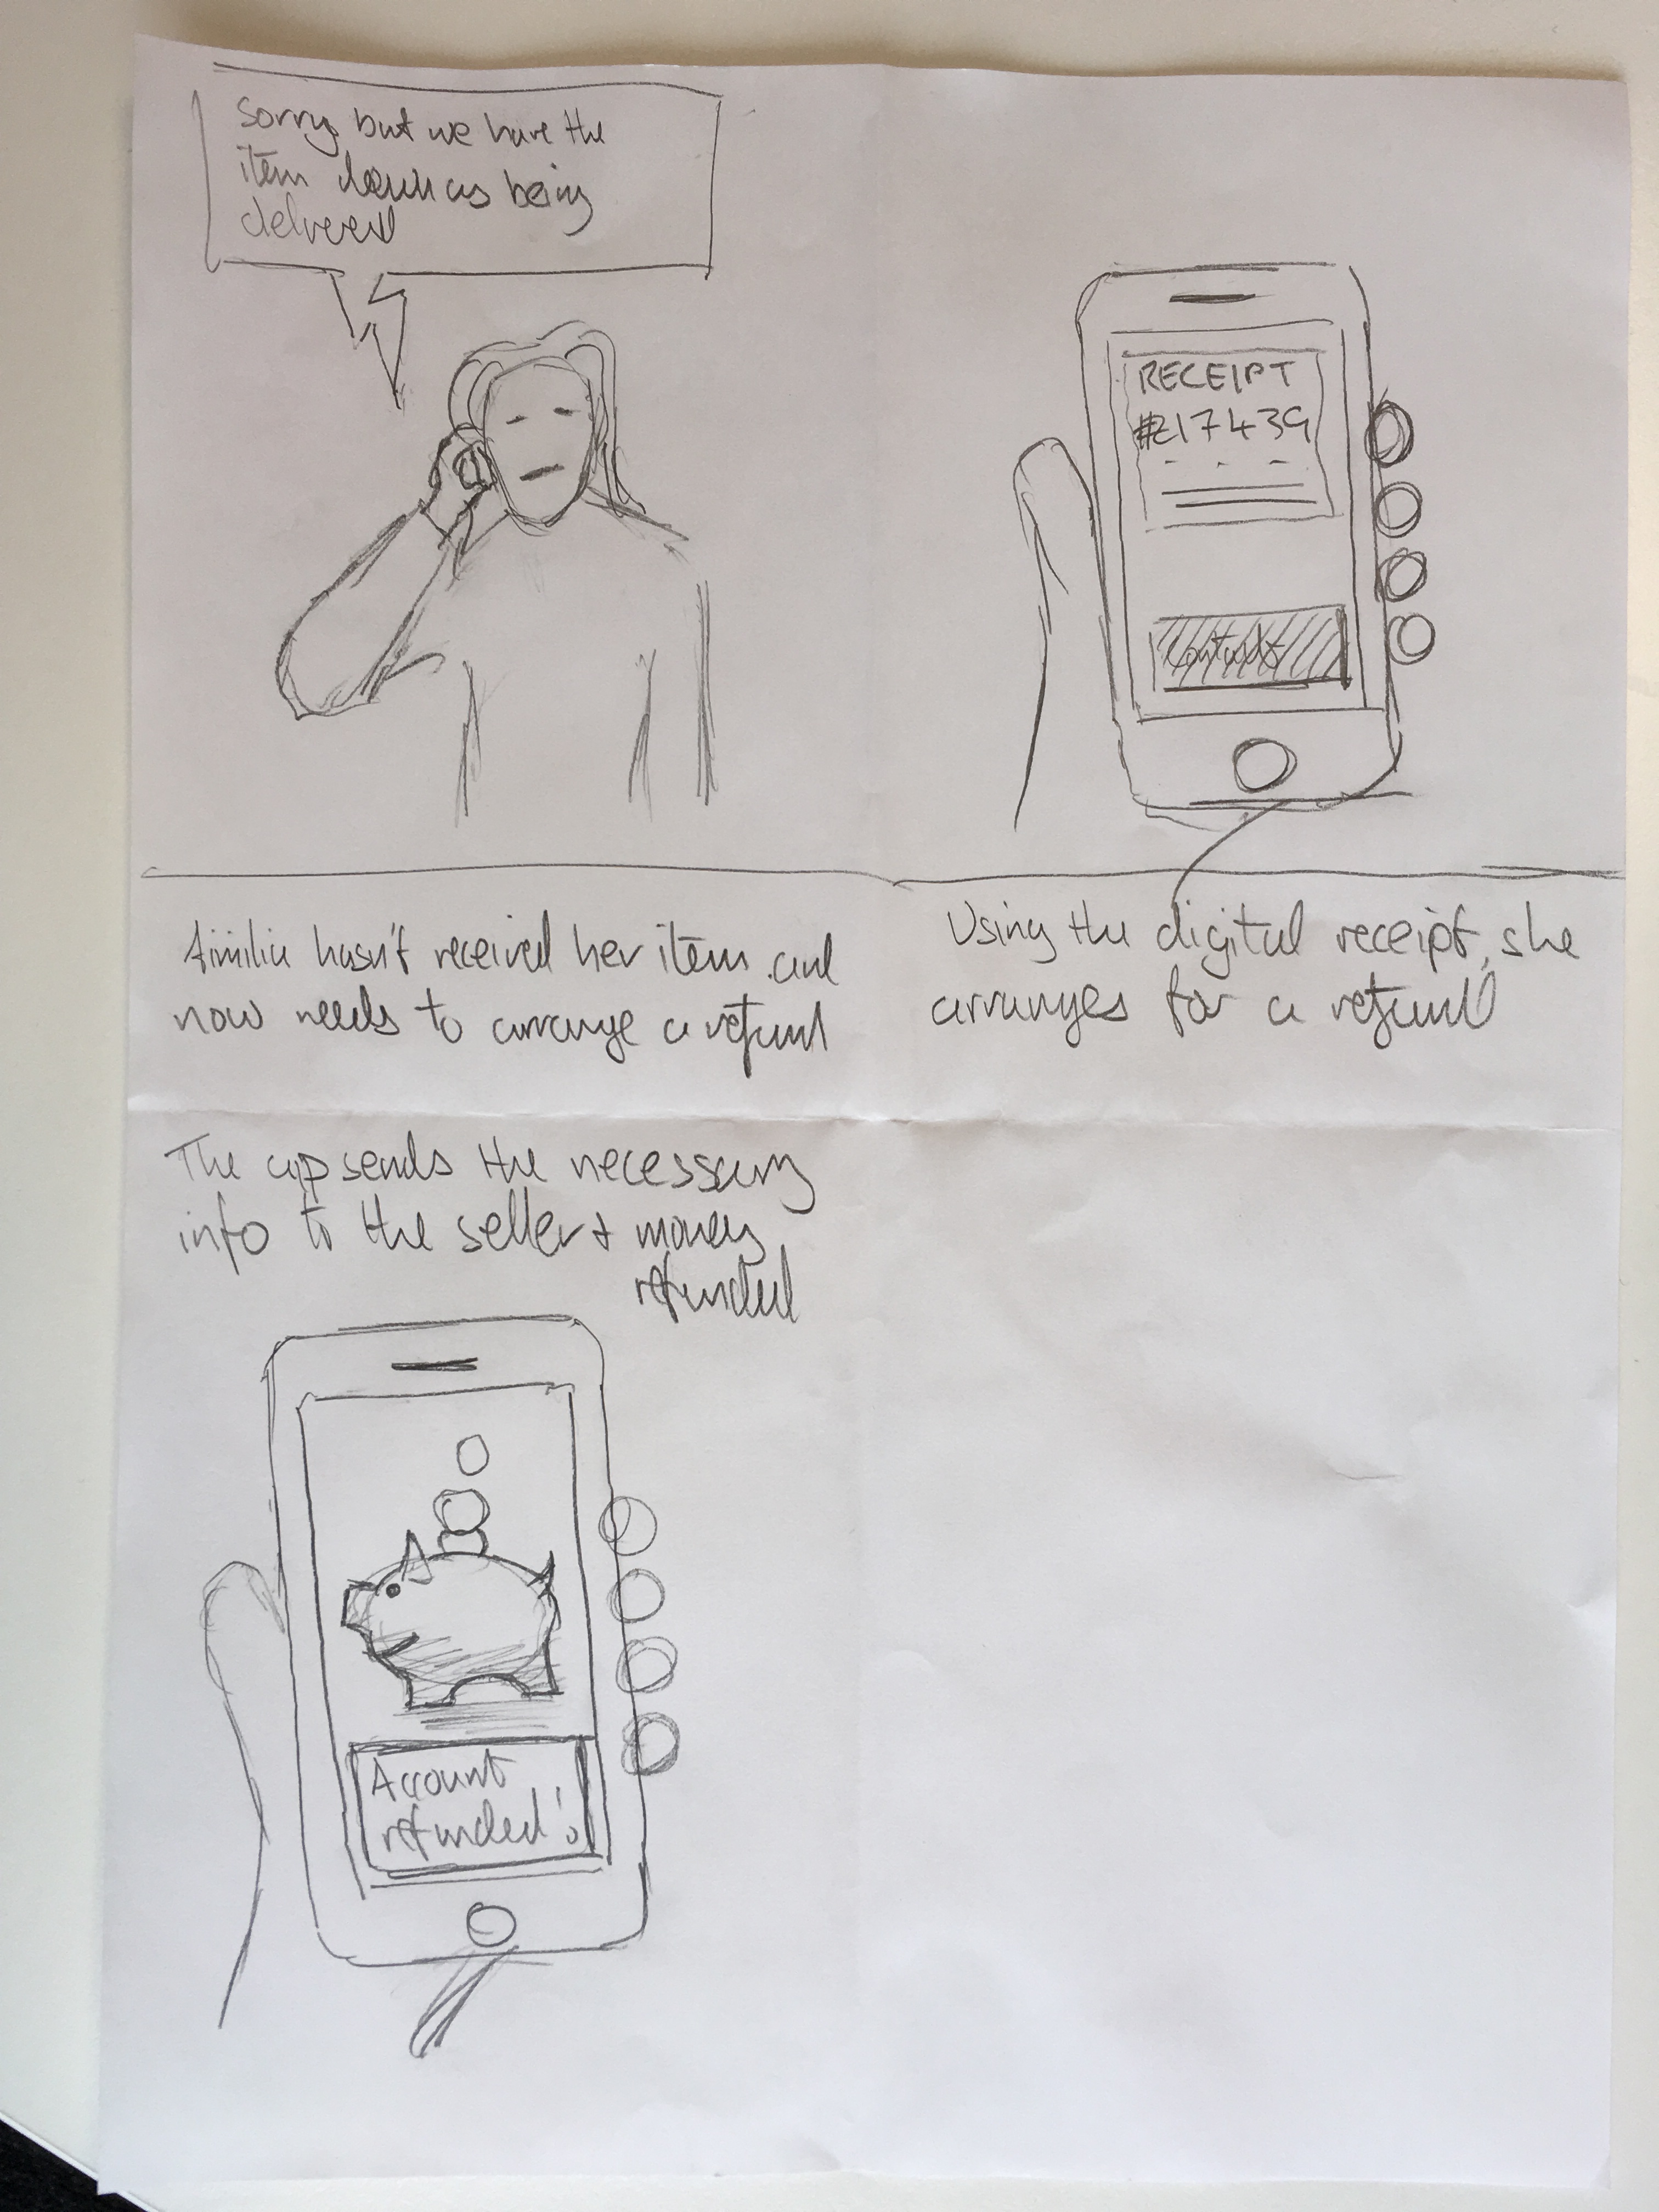 Sorry but we have the
item down as being
delivered
RECEIPT
#217439
hasn't received her item and
now needs to arrange a refund
Using the digital receipt, she
arranges for a refund
The app sends the necessary
info to the seller + money
refunded
Account
refunded!